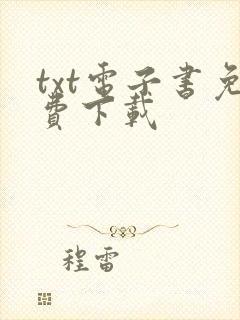 txt電子書免
費下載
程雷